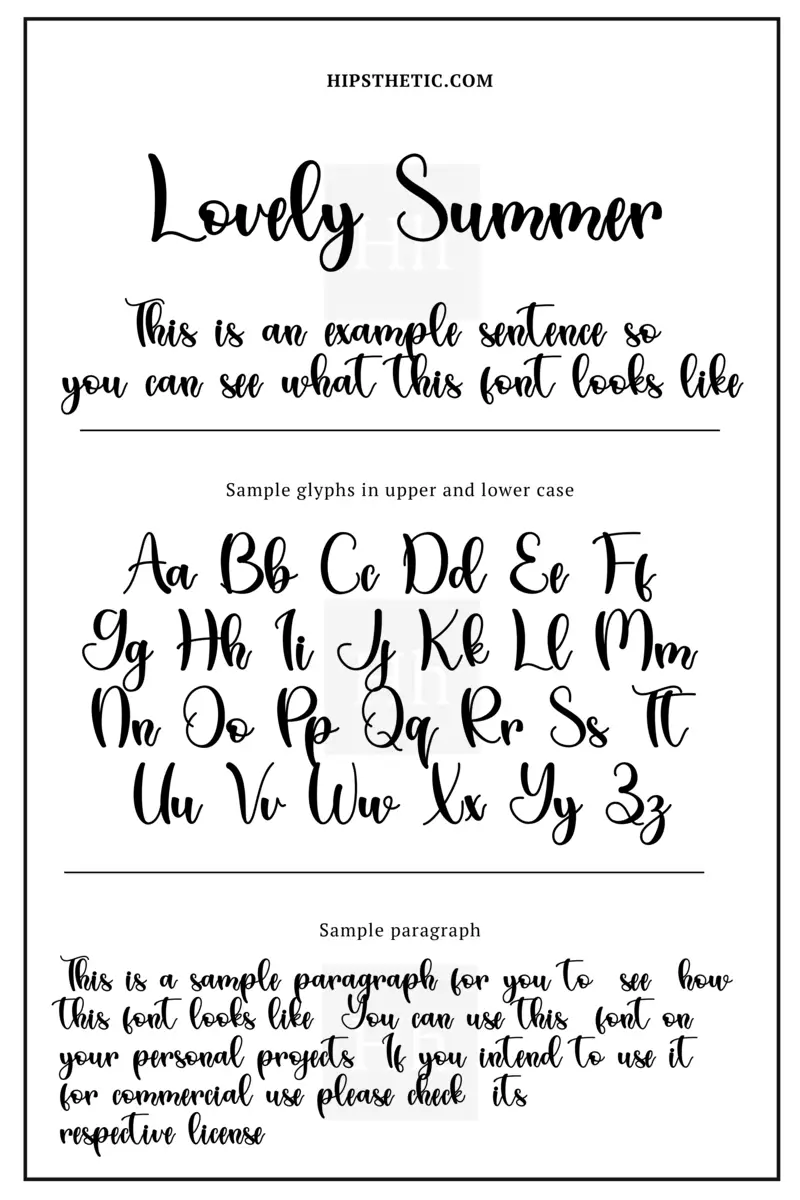 HIPSTHETIC.COM
Lovely Summer
This is an example sentence so
you can see what this font looks like
Sample glyphs in upper and lower case
Aa Bb Cc Dd Ee Ff
Gg Hh Ii Jj Kk Ll Mm
Nn Oo Pp Qq Rr Ss Tt
Uu Vv Ww Xx Yy Zz
Sample paragraph
This is a sample paragraph for you to see how
this font looks like You can use this font on
your personal projects If you intend to use it
for commercial use please check its
respective license
Hh
Hh
Hh